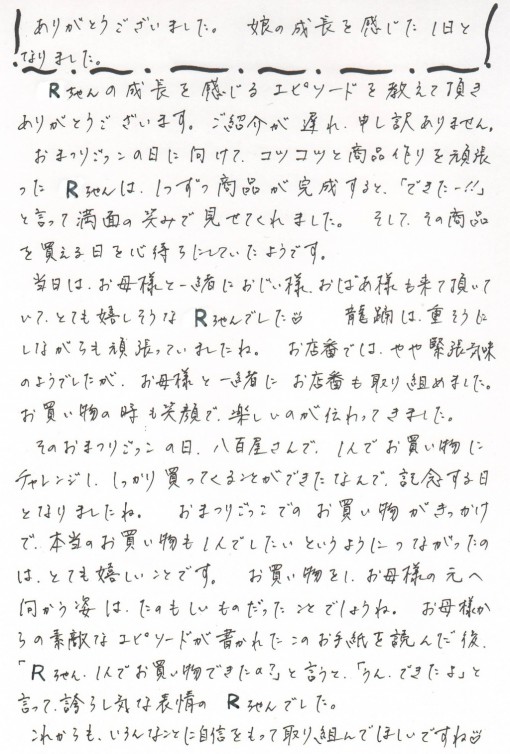 ありがとうございました。 娘の成長を感じた1日と
なりました。
Rちゃんの成長を感じるエピソードを教えて頂き
ありがとうございます。ご紹介が遅れ、申し訳ありません。
おまつりごっこの日に向けて、コツコツと商品作りを頑張
った Rちゃんは、1つずつ商品が完成すると、「できたー!!」
と言って満面の笑みで見せてくれました。 そして、その商品
を買える日を心待ちにしていたようです。
当日は、お母様と一緒におじい様、おばあ様も来て頂いて
いて、とても嬉しそうな Rちゃんでした 龍踊は、重そうに
しながらも頑張っていましたね。 お店番では、やや緊張気味
のようでしたが、お母様と一緒に お店番も取り組めました。
お買い物の時も笑顔で、楽しいのが伝わってきました。
そのおまつりごっこの日、八百屋さんで、1人でお買い物に
チャレンジし、しっかり買ってくることができたなんで、記念する日
となりましたね。 おまつりごっこでの お買い物がきっかけ
で、本当のお買い物も1人でしたいというようにつながったの
は、とても嬉しいことです。 お買い物をし、お母様の元へ
向かう姿は、たのもしいものだったことでしょうね。 お母様か
らの素敵なエピソードが書かれたこのお手紙を読んだ後、
「Rちゃん、1人でお買い物できたの?」と言うと、「うん、できたよ」と
言って、誇らし気な表情の Rちゃんでした。
これからも、いろんなことに自信をもって取り組んでほしいですね